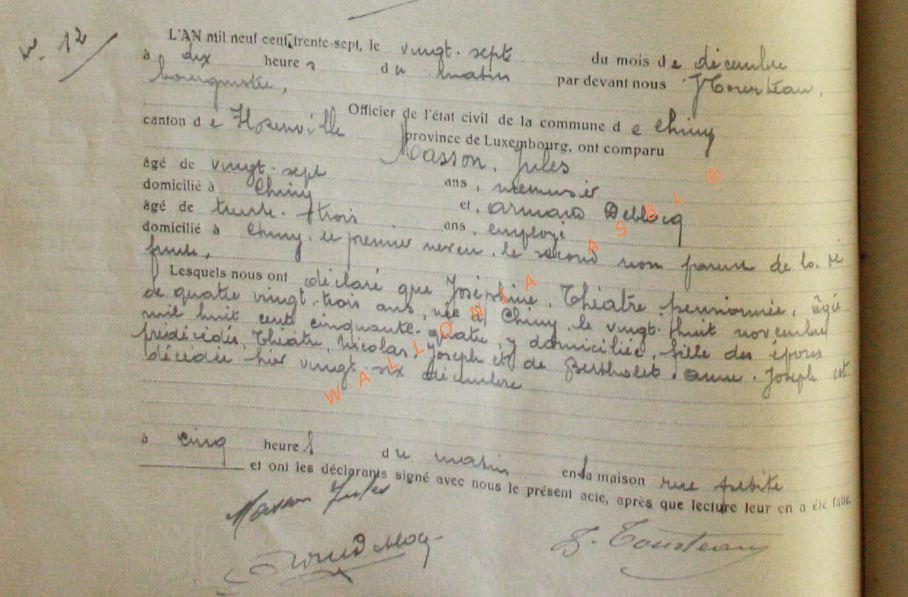 N. 12
L'AN mil neuf cent trente-sept, le vingt-sept du mois de décembre
à dix heures du matin par devant nous
bourgmestre, Officier de l'état civil de la commune de Chiny
canton de province de Luxembourg, ont comparu
Masson, Jules
âgé de vingt-sept ans, menuisier
domicilié à Chiny et, Armand
âgé de trente-trois ans, employé
domicilié à Chiny, le premier neveu, le second non parent de la dé
funte,
Lesquels nous ont déclaré que Joséphine, Théatre, pensionnée, âgée
de quatre vingt-trois ans, née à Chiny, le vingt-huit novembre
mil huit cent cinquante-quatre, y domiciliée, fille des époux
prédécédés, Théatre, Nicolas, Joseph et de Bertholet, Anne, Joseph est
décédée hier vingt-six décembre
à cinq heures du matin en sa maison rue
et ont les déclarants signé avec nous le présent acte, après que lecture leur en a été faite.
Masson Jules
WALLONIA ASBL ®